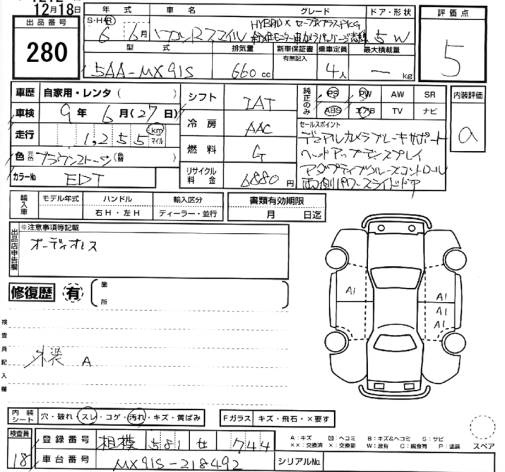 12月18日
出品番号 280
年式 S・H・R 6年 6月
車名 ワゴンRスマイル
グレード HYBRID X セーフティプラスPKG
ドア・形状 5W
評価点 5
型式 5AA-MX91S
排気量 660cc
新車保証書 有無記入
乗車定員 4人
最大積載量 — kg
車歴 自家用・レンタ( )
車検 9年6月(27日)
走行 1,255 km マイル
色 元色 ブラウンストーン(替
カラーNo EDT
シフト IAT
冷房 AAC
燃料 G
リサイクル料金 6880円
純正のみ PS PW AW SR
ABS エアB TV ナビ
内装評価 a
セールスポイント
デュアルカメラブレーキサポート
ヘッドアップディスプレイ
アダプティブクルーズコントロール
両側パワースライドドア
輸入車 モデル年式 ハンドル 輸入区分 書類有効期限
右H・左H ディーラー・並行 月 日迄
出品店申告欄 ※注意事項等記載
オーディオレス
修復歴 有 箇所
検査員記入欄
外装 A
A1 A1
A1 A1
内装シート 穴・破れ・スレ・コゲ・汚れ・キズ・黄ばみ
Fガラス キズ・飛石・×要す
A:キズ 凹:ヘコミ B:キズ&ヘコミ S:サビ
××:交換済 ×:交換要 W:波有 C:腐食有 P:塗装 スペア
検査員 18
登録番号 相模 581 せ 744
車台番号 MX91S-218492
シリアルNo.